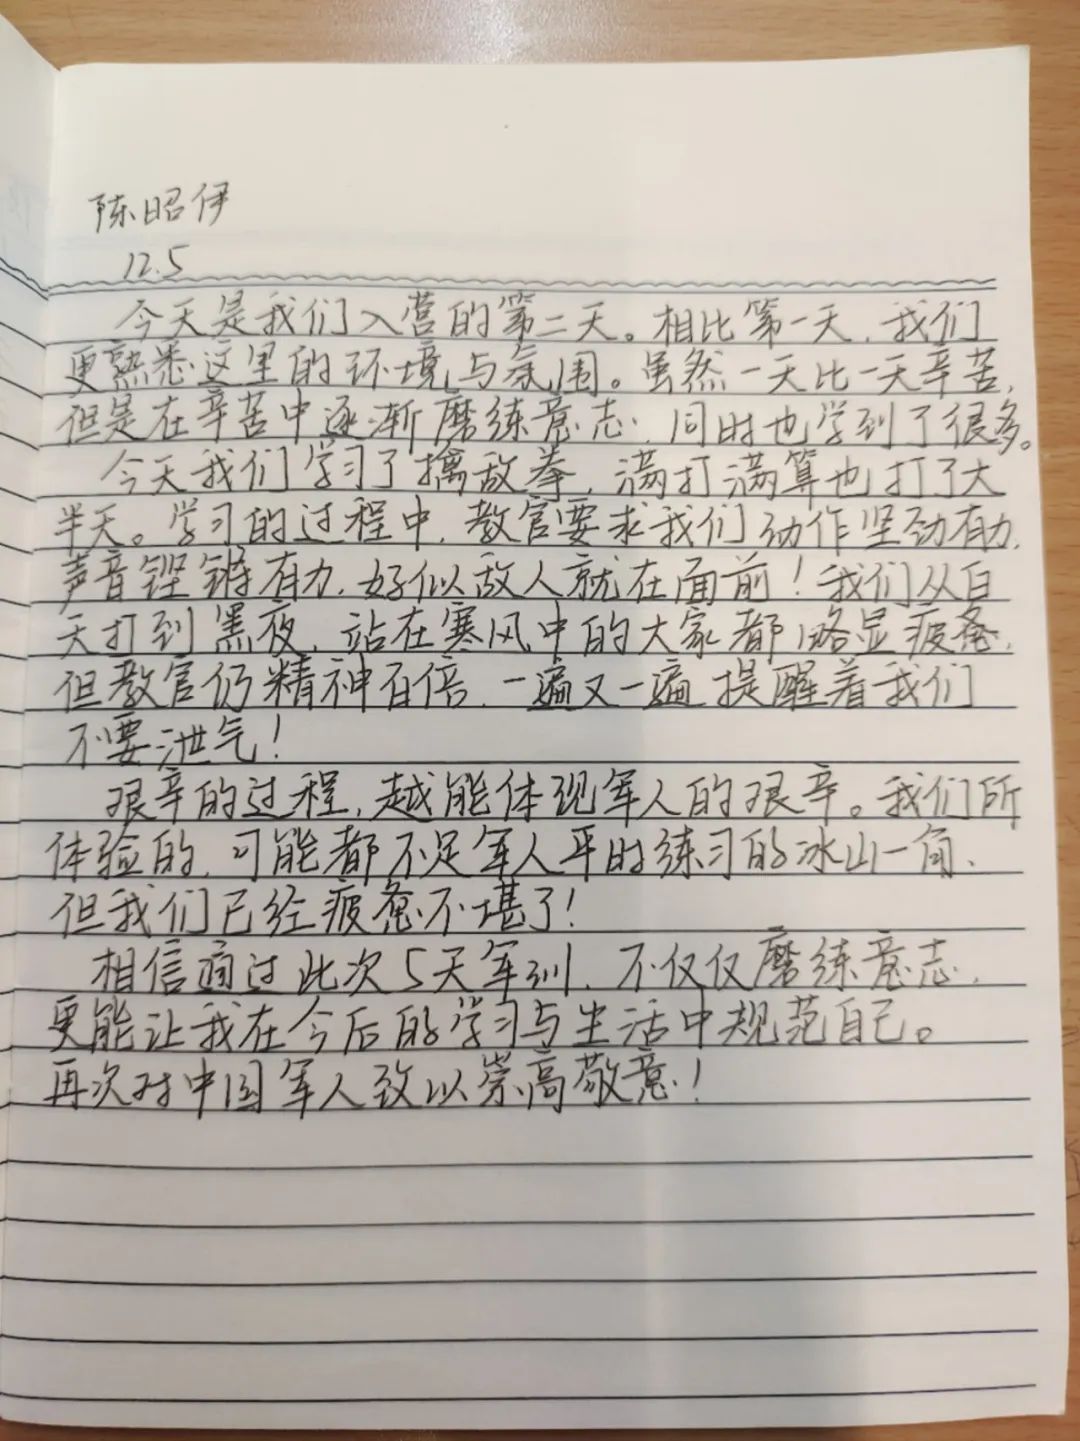 陈昭伊
12.5
今天是我们入营的第二天。相比第一天，我们
更熟悉这里的环境与氛围。虽然一天比一天辛苦，
但是在辛苦中逐渐磨练意志，同时也学到了很多。
今天我们学习了擒敌拳，满打满算也打了大
半天。学习的过程中，教官要求我们动作坚劲有力，
声音铿锵有力，好似敌人就在面前！我们从白
天打到黑夜，站在寒风中的大家都略显疲惫，
但教官仍精神百倍，一遍又一遍提醒着我们
不要泄气！
艰辛的过程，越能体现军人的艰辛。我们所
体验的，可能都不足军人平时练习的冰山一角，
但我们已经疲惫不堪了！
相信通过此次5天军训，不仅仅磨练意志，
更能让我在今后的学习与生活中规范自己。
再次对中国军人致以崇高敬意！